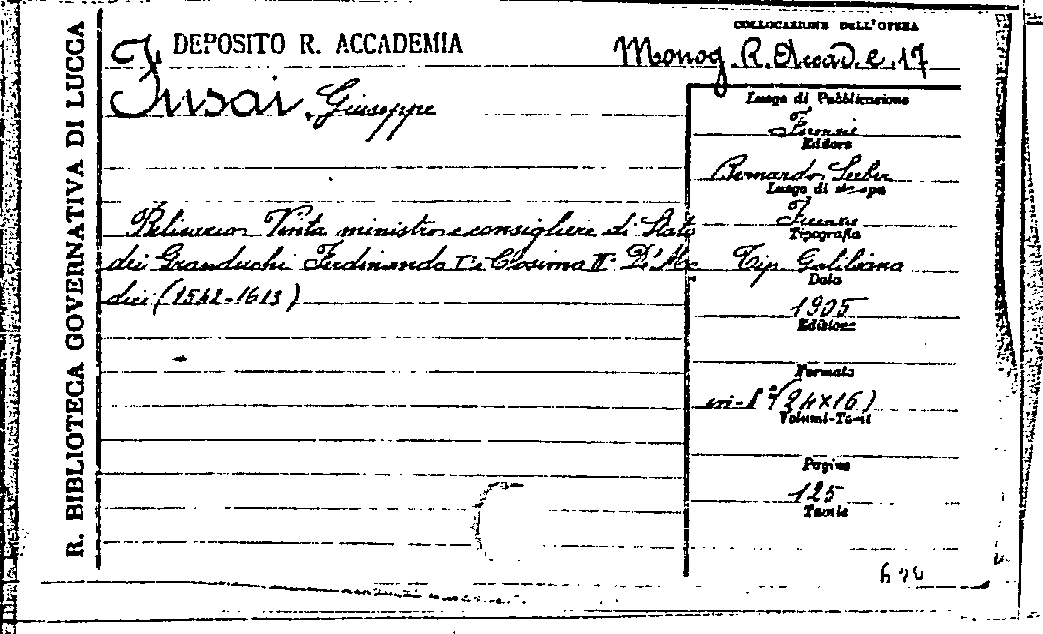 R. BIBLIOTECA GOVERNATIVA DI LUCCA
DEPOSITO R. ACCADEMIA
COLLOCAZIONE DELL'OPERA
Monog. R. Accad. e. 17
Fusai, Giuseppe
Belisario Vinta ministro e consigliere di Stato
dei Granduchi Ferdinando I° e Cosimo II° De' Me
dici (1542-1613)
Luogo di Pubblicazione
Firenze
Editore
Bernardo Seeber
Luogo di stampa
Firenze
Tipografia
Tip. Galileiana
Data
1905
Edizione
Formato
in-8° (24×16)
Volumi-Tomi
Pagine
125
Tavole